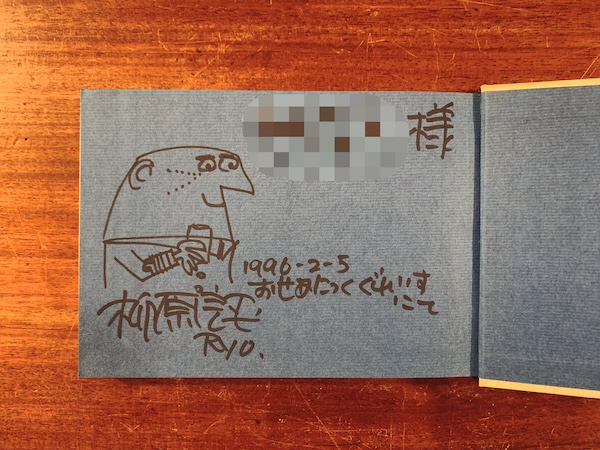 様
1996-2-5
おせあにっくぐれいす
にて
柳原良平
RYO.